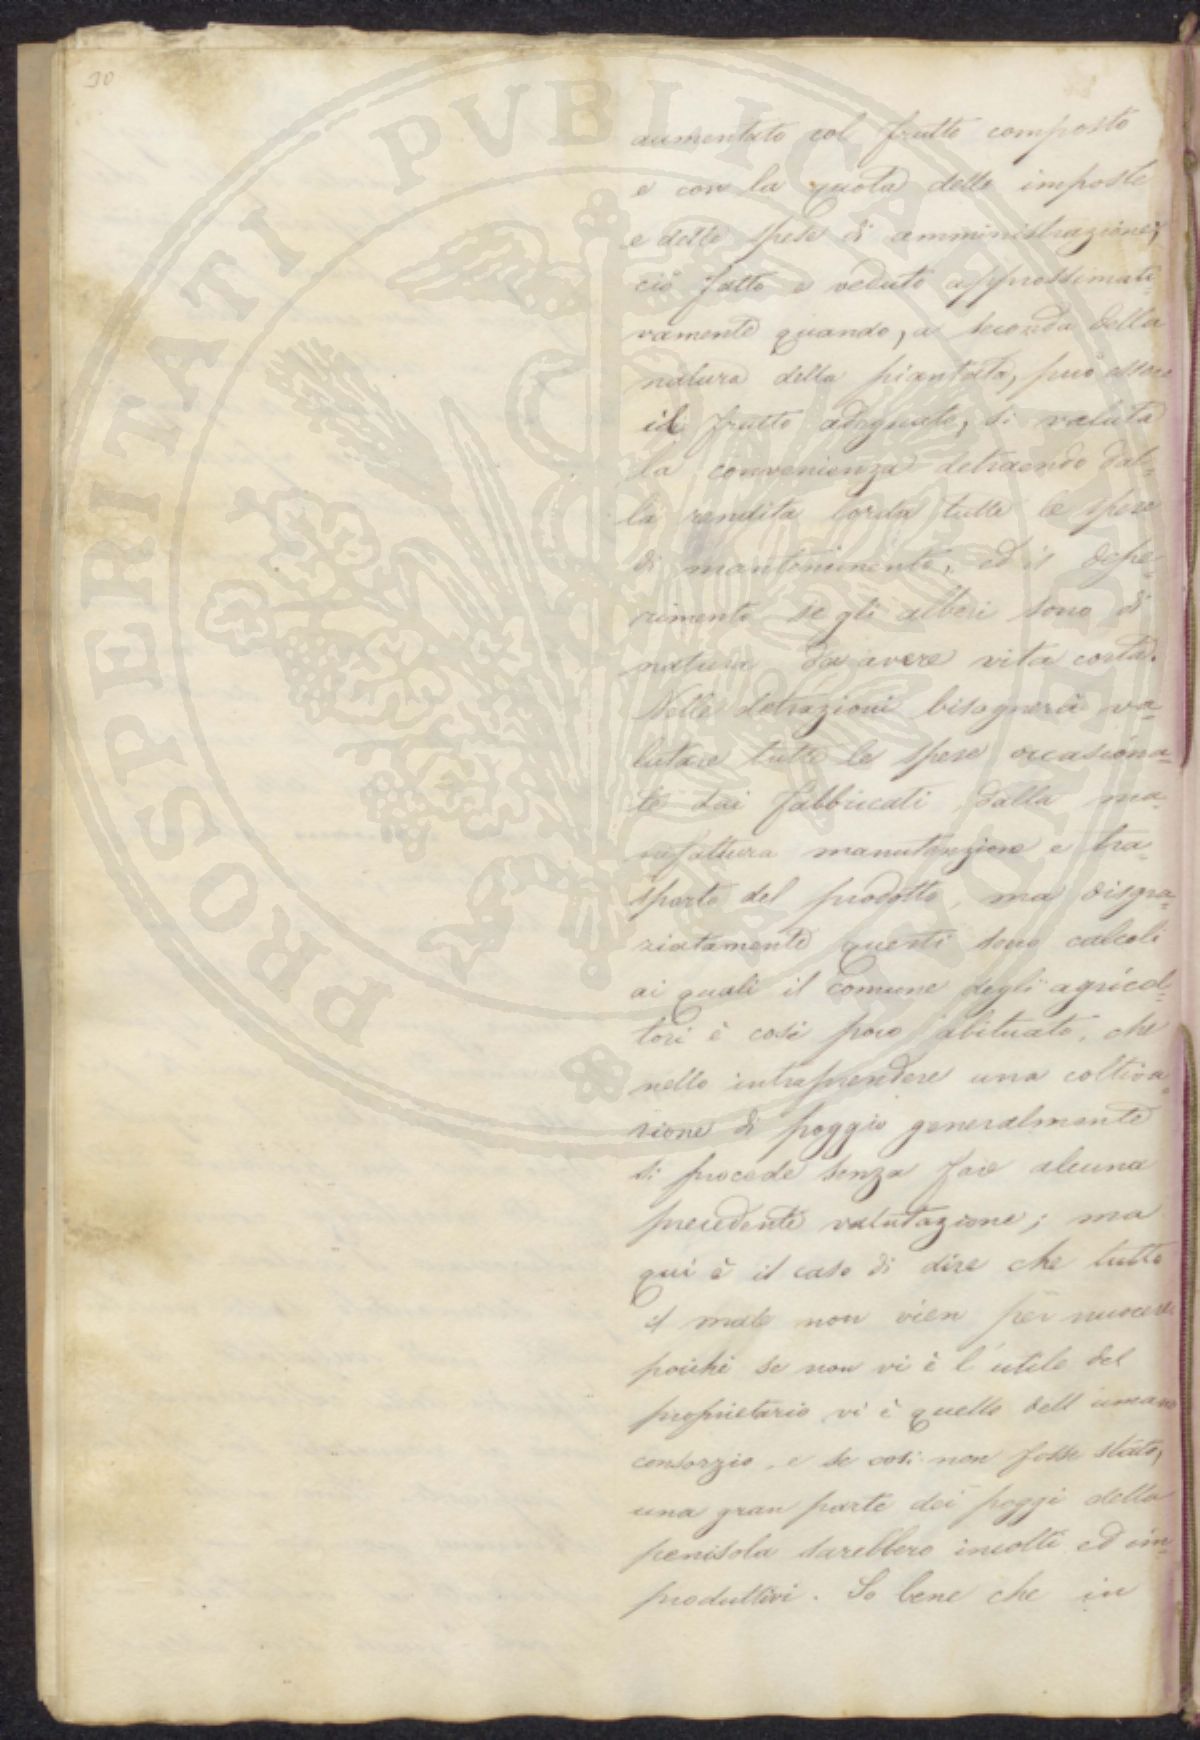 30
aumentato col frutto composto
e con la quota delle imposte
e delle spese di amministrazione;
ciò fatto e veduto approssimati-
vamente quando, a seconda della
natura della piantata, può essere
il frutto adeguato, si valuta
la convenienza detraendo dal-
la rendita lorda tutte le spese
di mantenimento, ed il depe-
rimento se gli alberi sono di
natura da avere vita corta.
Nelle detrazioni bisognerà va-
lutare tutte le spese occasiona-
te dai fabbricati dalla ma-
nifattura manutenzione e tra-
sporto del prodotto, ma disgra-
ziatamente questi sono calcoli
ai quali il comune degli agricol-
tori è così poco abituato, che
nello intraprendere una coltiva-
zione di poggio generalmente
si procede senza fare alcuna
precedente valutazione; ma
qui è il caso di dire che tutto
il male non vien per nuocere
poiché se non vi è l'utile del
proprietario vi è quello dell'umano
consorzio, e se così non fosse stato,
una gran parte dei poggi della
penisola sarebbero incolti ed im-
produttivi. So bene che in
PROSPERITATI PUBLICAE AUGENDAE